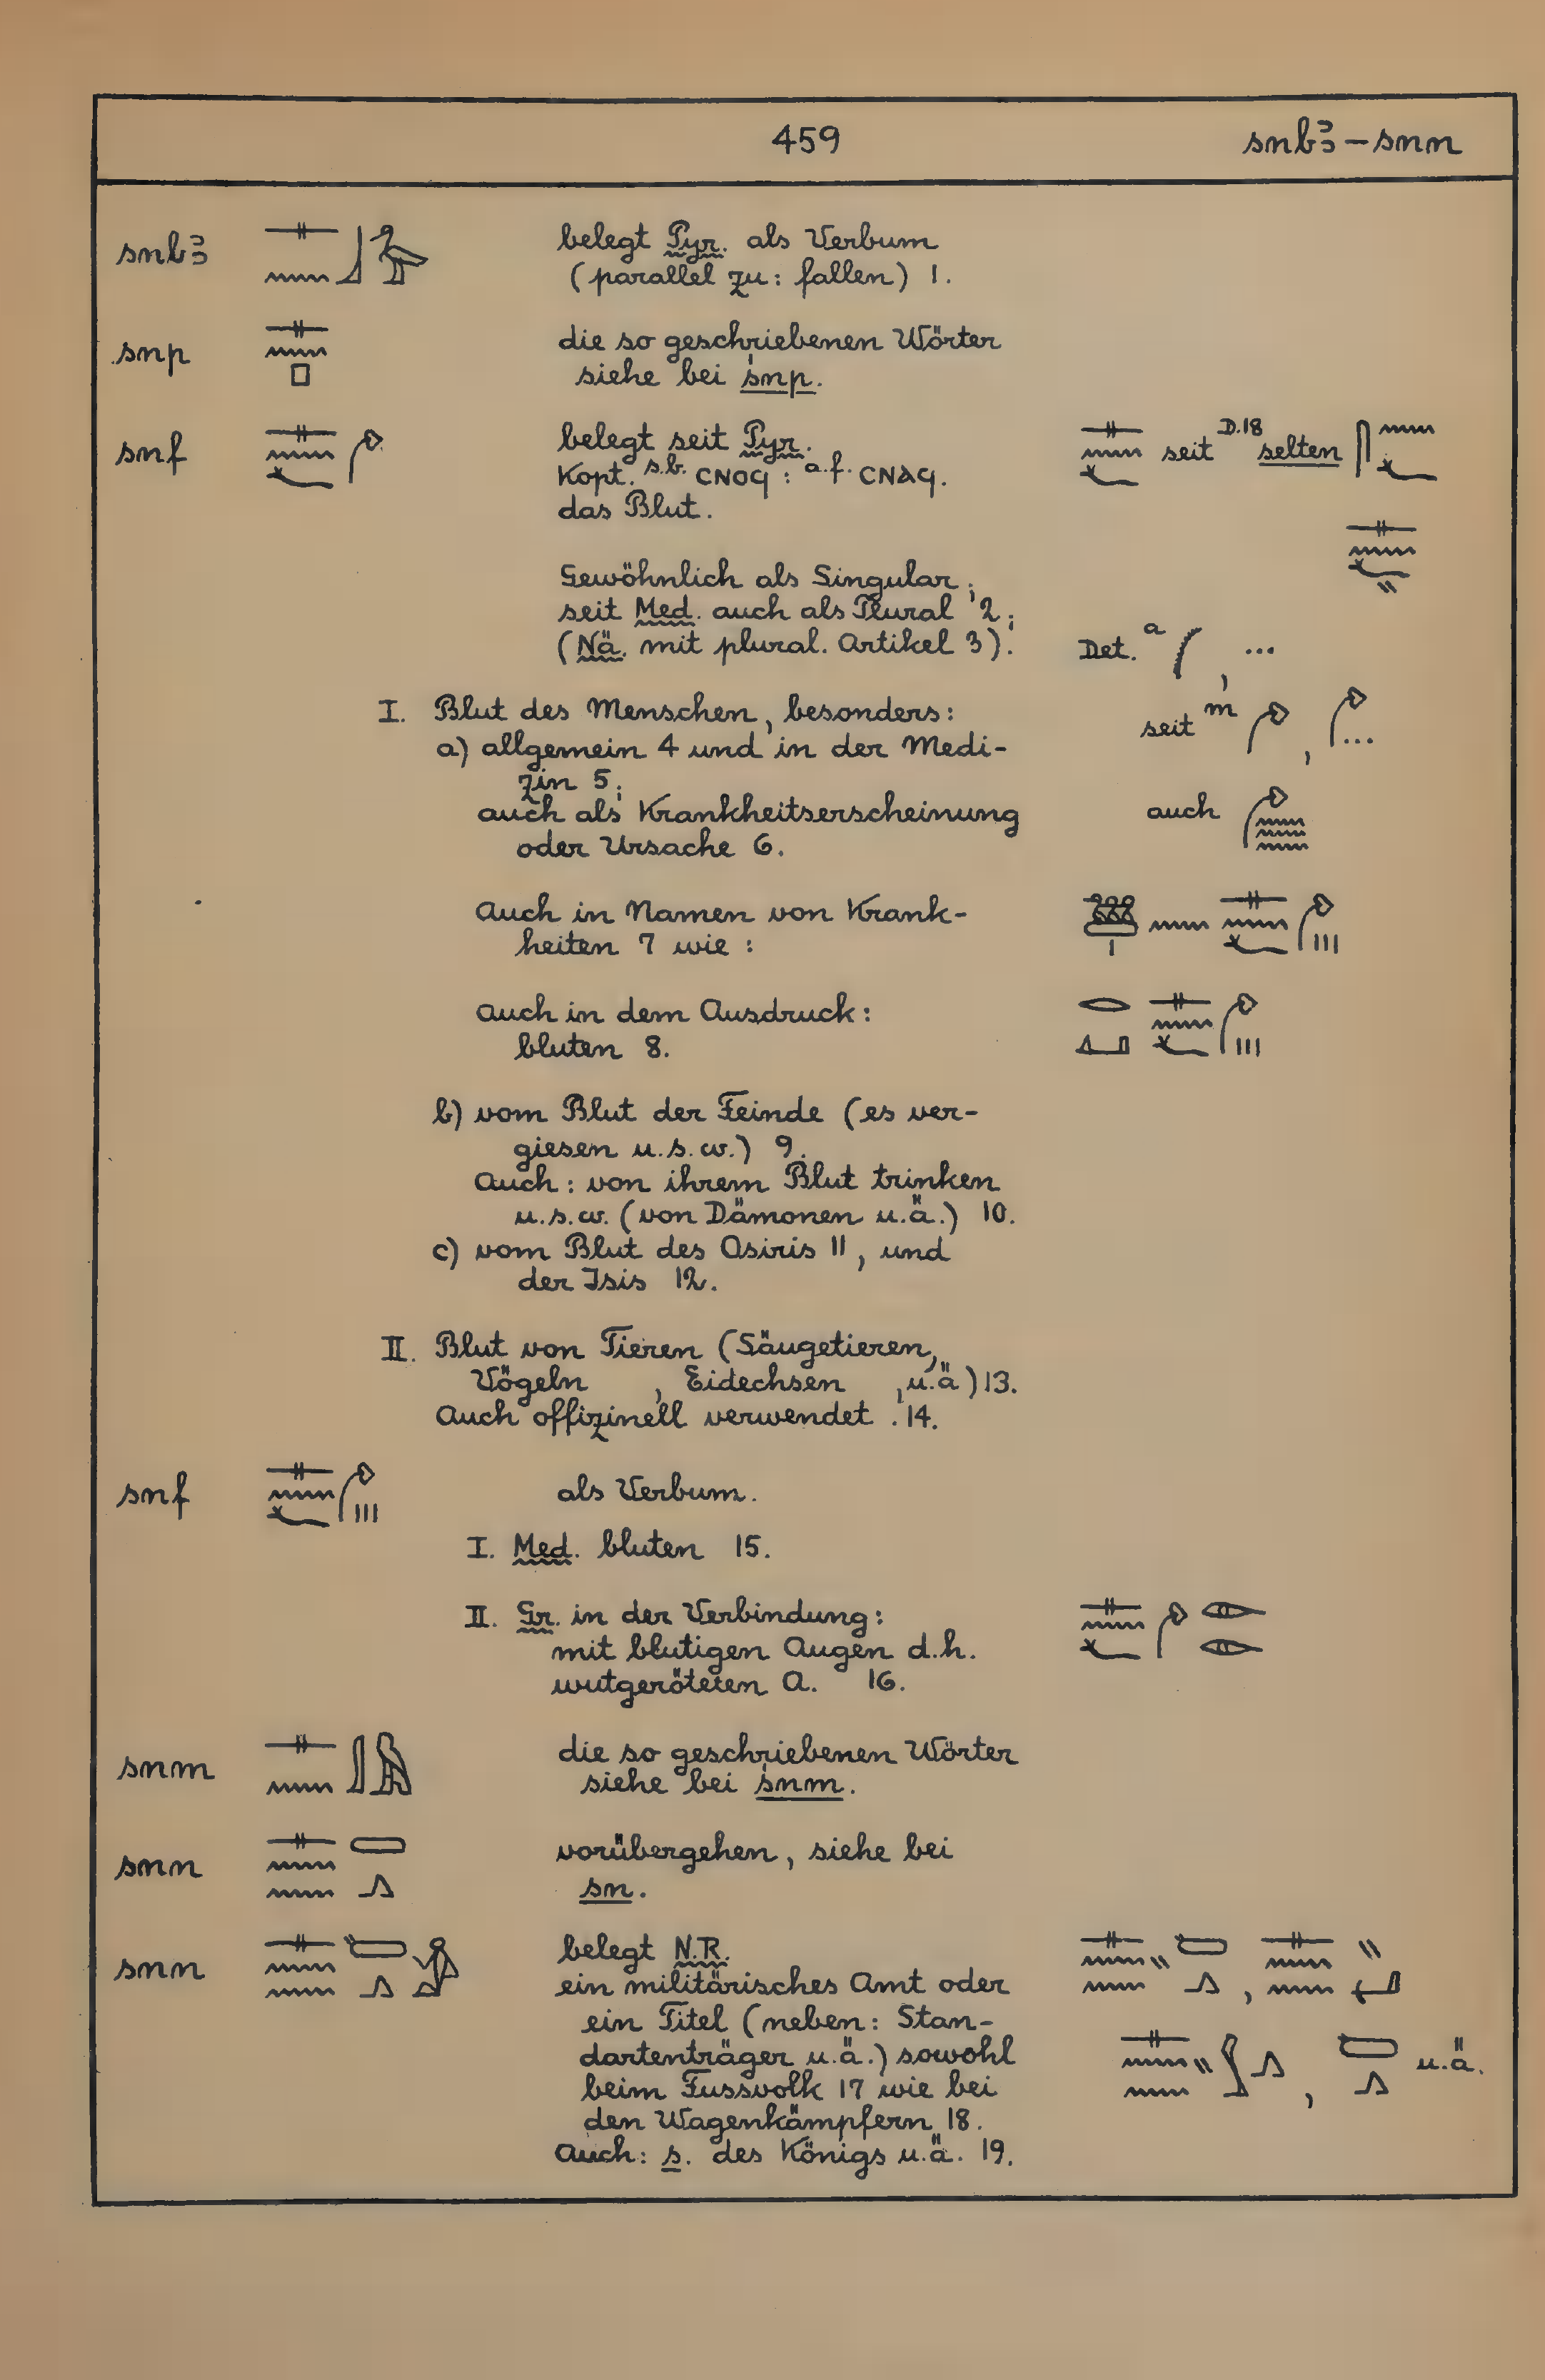 459 snbꜣ – snn
snbꜣ belegt Pyr. als Verbum
(parallel zu: fallen) 1.
snp die so geschriebenen Wörter
siehe bei śnp.
snf belegt seit Pyr. seit D.18 selten
Kopt. s.b. ⲥⲛⲟϥ : a.f. ⲥⲛⲁϥ.
das Blut.
Gewöhnlich als Singular;
seit Med. auch als Plural 2;
(Nä. mit plural. Artikel 3). Det. a , ...
I. Blut des Menschen, besonders:
seit m , ...
a) allgemein 4 und in der Medi-
zin 5;
auch als Krankheitserscheinung auch
oder Ursache 6.
Auch in Namen von Krank-
heiten 7 wie:
Auch in dem Ausdruck:
bluten 8.
b) vom Blut der Feinde (es ver-
giesen u.s.w.) 9.
Auch: von ihrem Blut trinken
u.s.w. (von Dämonen u.ä.) 10.
c) vom Blut des Osiris 11, und
der Isis 12.
II. Blut von Tieren (Säugetieren,
Vögeln , Eidechsen , u.ä) 13.
Auch offizinell verwendet . 14.
snf als Verbum.
I. Med. bluten 15.
II. Gr. in der Verbindung:
mit blutigen Augen d.h.
wutgeröteten A. 16.
snm die so geschriebenen Wörter
siehe bei śnm.
snn vorübergehen, siehe bei
sn.
snn belegt N.R. ,
ein militärisches Amt oder
ein Titel (neben: Stan-
dartenträger u.ä.) sowohl , u.ä.
beim Fussvolk 17 wie bei
den Wagenkämpfern 18.
Auch: s. des Königs u.ä. 19.